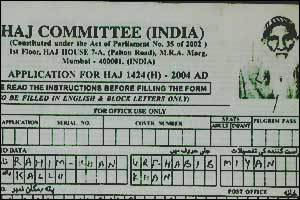 HAJ COMMITTEE (INDIA)
(Constituted under the Act of Parliament No. 35 of 2002)
1st Floor, HAJ HOUSE 7-A, (Palton Road), M.R.A. Marg,
Mumbai - 400001. (INDIA)
APPLICATION FOR HAJ 1424 (H) - 2004 AD
READ THE INSTRUCTIONS BEFORE FILLING THE FORM
TO BE FILLED IN ENGLISH & BLOCK LETTERS ONLY)
FOR OFFICE USE ONLY
APPLICATION SERIAL NO. COVER NUMBER SEATS PILGRIM PASS
ADULT INFANT
DATA
RAHIM KHAN URF HABIB MIYAN
KALLU KHAN
POST OFFICE